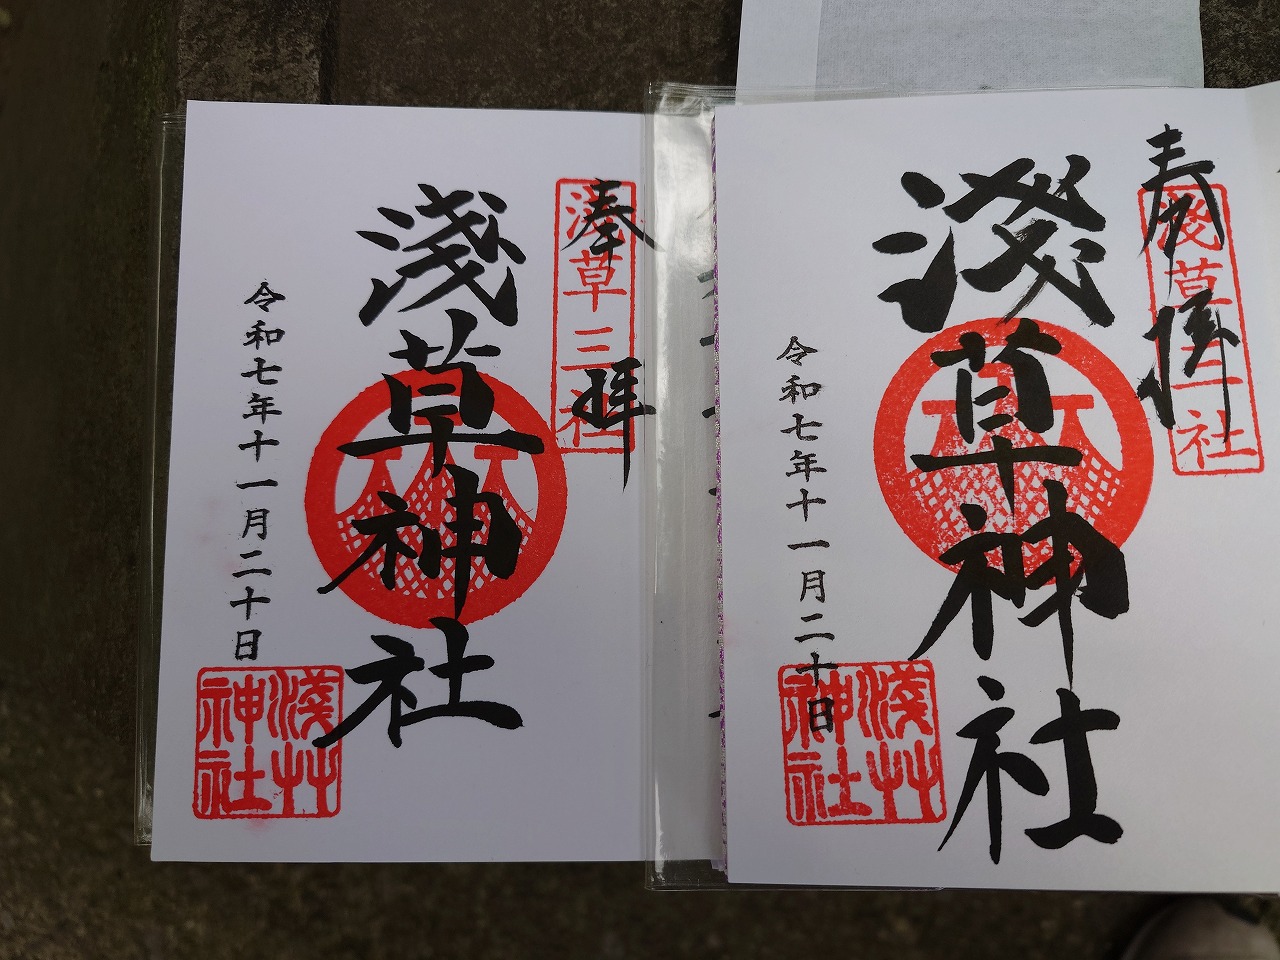 奉拝
淺草三社
淺草神社
令和七年十一月二十日
淺草神社
奉拝
淺草三社
淺草神社
令和七年十一月二十日
淺草神社